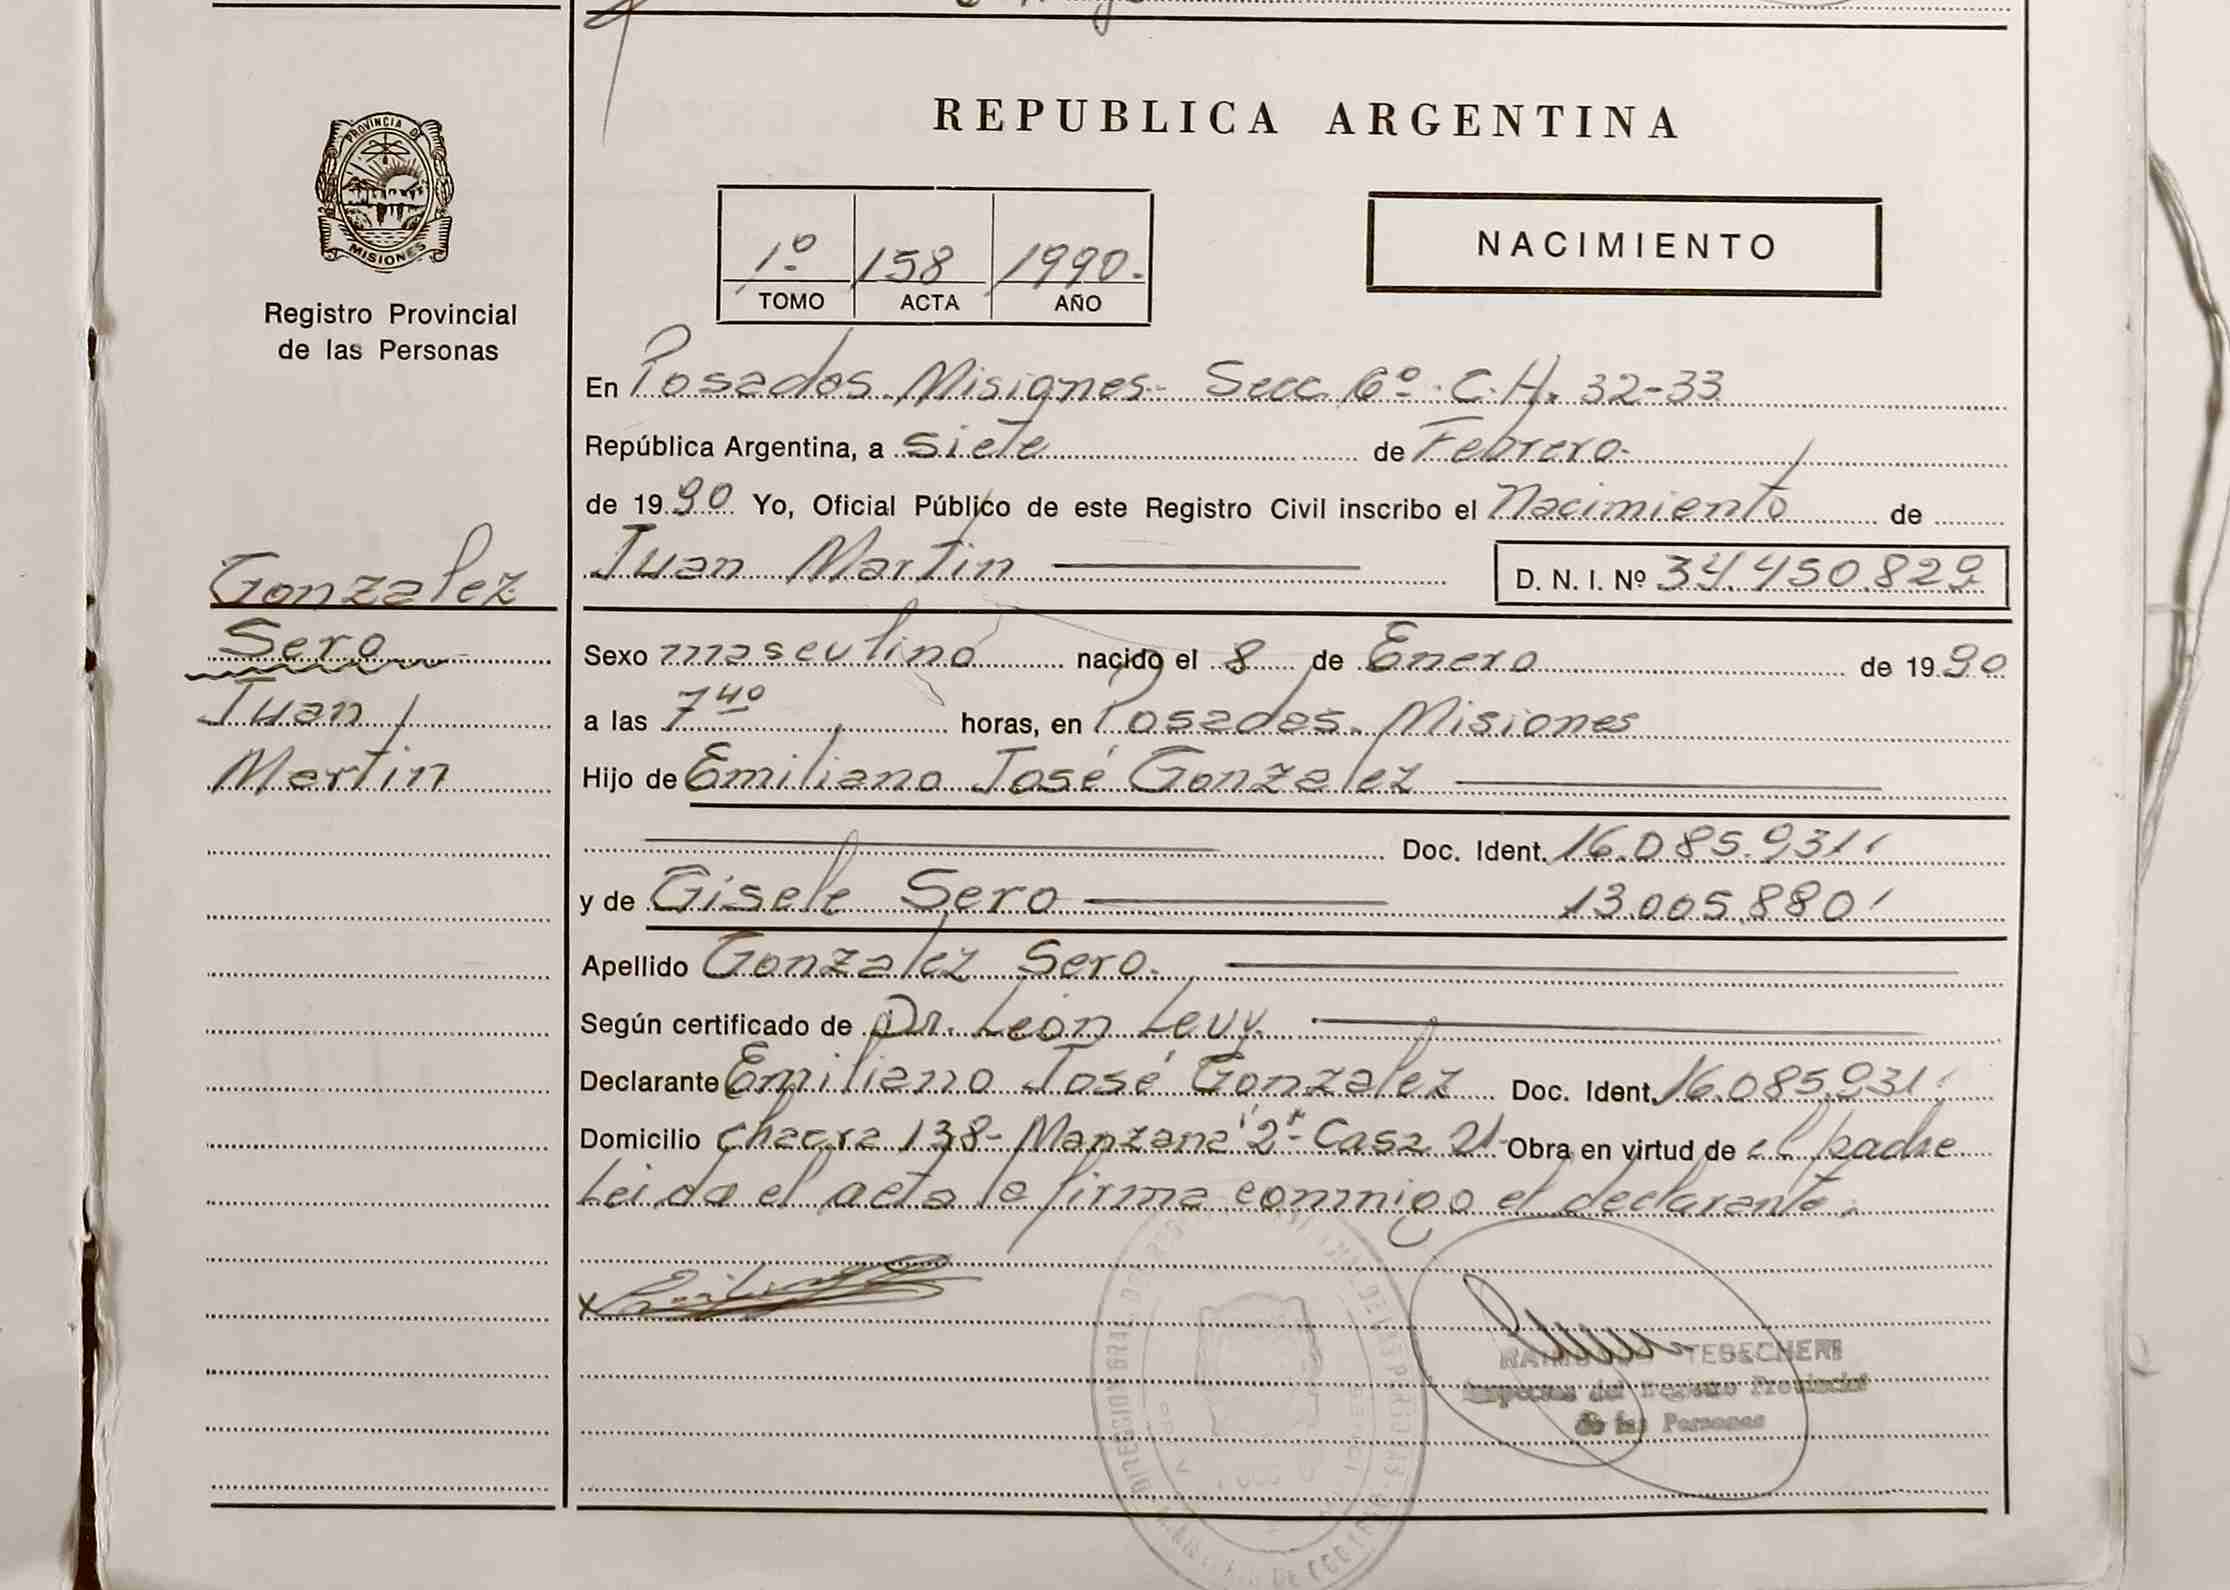 PROVINCIA DE
MISIONES
Registro Provincial
de las Personas
Gonzalez
Sero
Juan
Martin
REPUBLICA ARGENTINA
1º 158 1990.
TOMO ACTA AÑO
NACIMIENTO
En Posadas. Misiones- Secc. 6º. C.H. 32-33
República Argentina, a siete de Febrero.
de 1990 Yo, Oficial Público de este Registro Civil inscribo el Nacimiento de
Juan Martin
D. N. I. Nº 34.450.829
Sexo masculino nacido el 8 de Enero de 1990
a las 7 40 horas, en Posadas. Misiones
Hijo de Emiliano José Gonzalez
Doc. Ident. 16.085.931.
y de Gisele Sero 13.005.880
Apellido Gonzalez Sero.
Según certificado de Dr. León Levy.
Declarante Emiliano José Gonzalez Doc. Ident. 16.085.931.
Domicilio Chacra 138- Manzana "2"- Casa 21- Obra en virtud de el padre
Leida el acta la firma conmigo el declarante.
TEBECHERI
del Registro Provincial
de las Personas